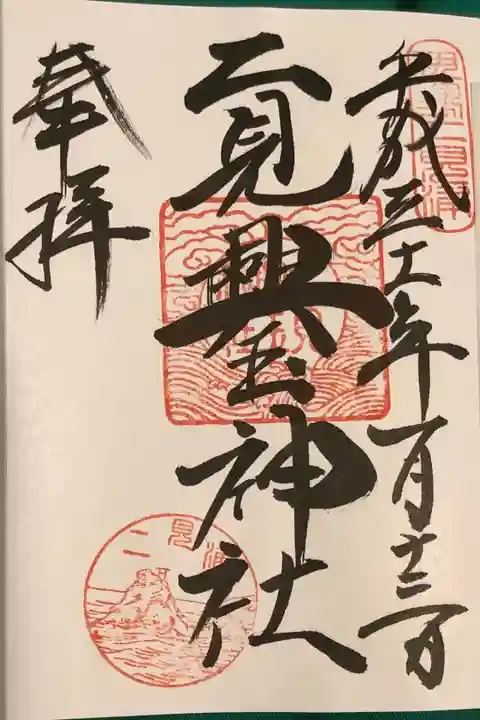 平成三十一年一月十三日
二見興玉神社
奉拝
二見浦